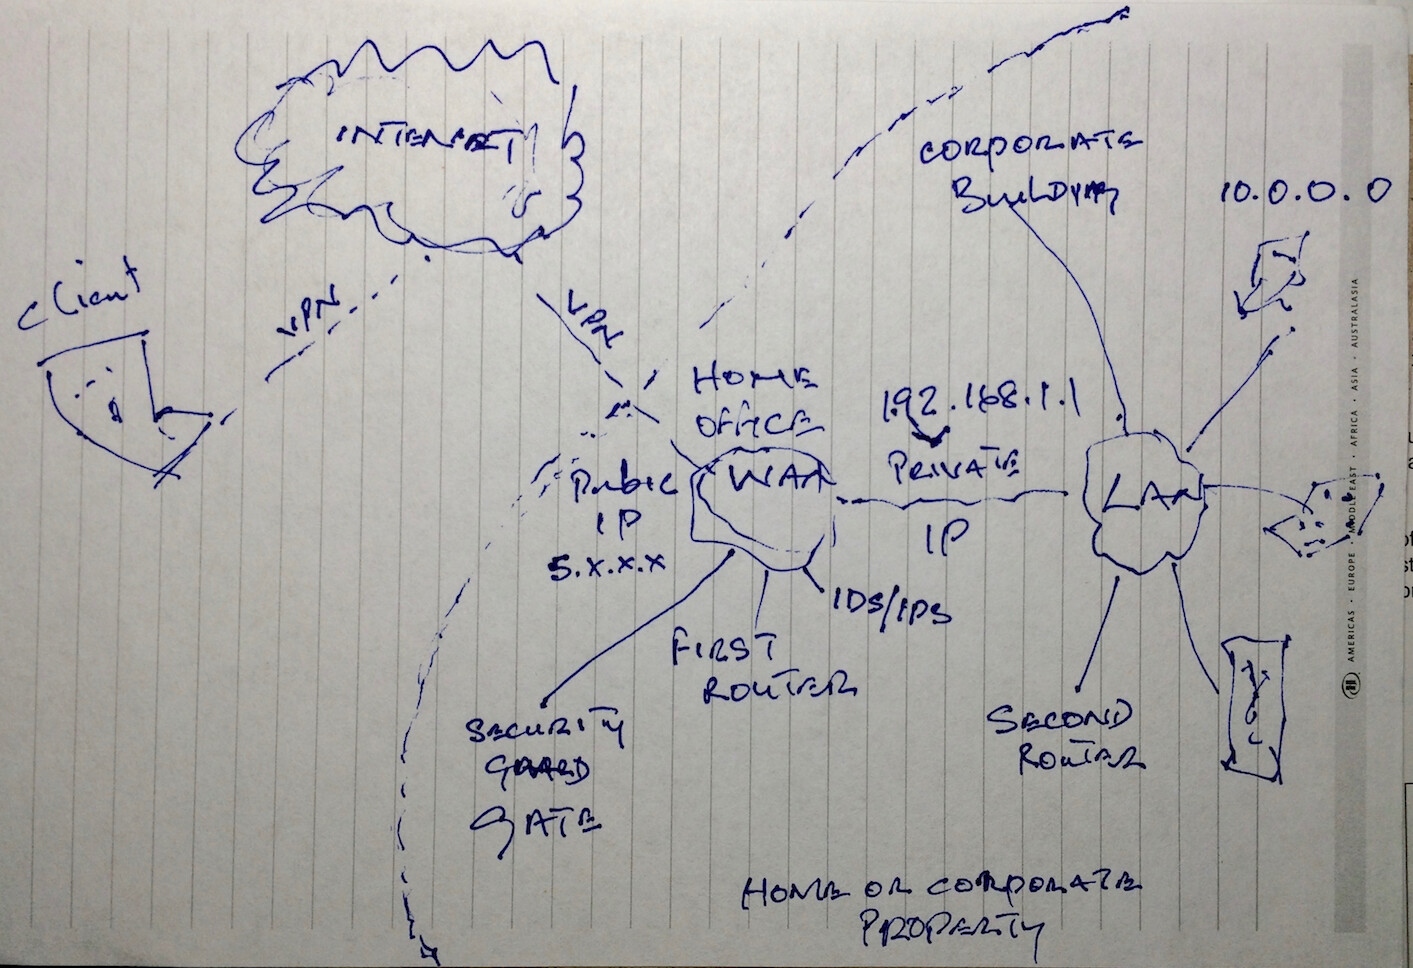 INTERNET
CORPORATE
BUILDING
10.0.0.0
client
VPN
VPN
HOME
OFFICE
192.168.1.1
PRIVATE
IP
Pubic
IP
5.x.x.x
WAN
LAN
IDS/IPS
FIRST
ROUTER
SECURITY
GUARD
GATE
SECOND
ROUTER
HOME OR CORPORATE
PROPERTY
AMERICAS · EUROPE · MIDDLE EAST · AFRICA · ASIA · AUSTRALASIA